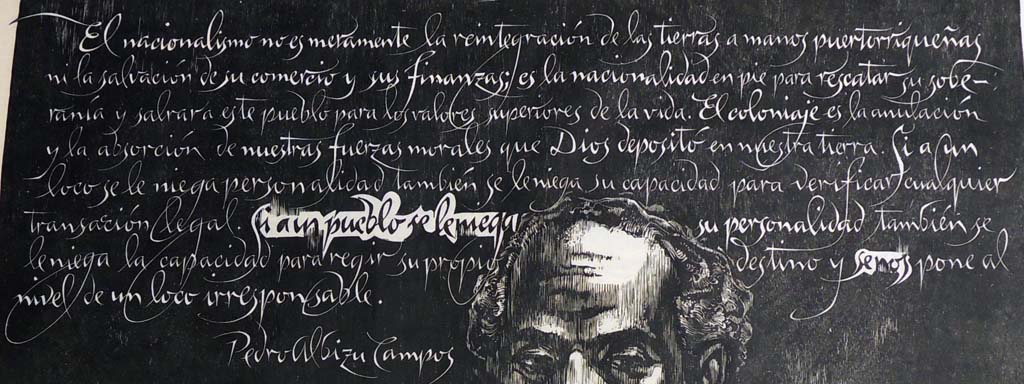 El nacionalismo no es meramente la reintegración de las tierras a manos puertorriqueñas
ni la salvación de su comercio y sus finanzas; es la nacionalidad en pie para rescatar su sobe-
ranía y salvará este pueblo para los valores superiores de la vida. El coloniaje es la anulación
y la absorción de nuestras fuerzas morales que Dios depositó en nuestra tierra. Si a un
loco se le niega personalidad también se le niega su capacidad para verificar cualquier
transación legal. Si a un pueblo se le niega su personalidad también se
le niega la capacidad para regir su propio destino y se nos pone al
nivel de un loco irresponsable.
Pedro Albizu Campos